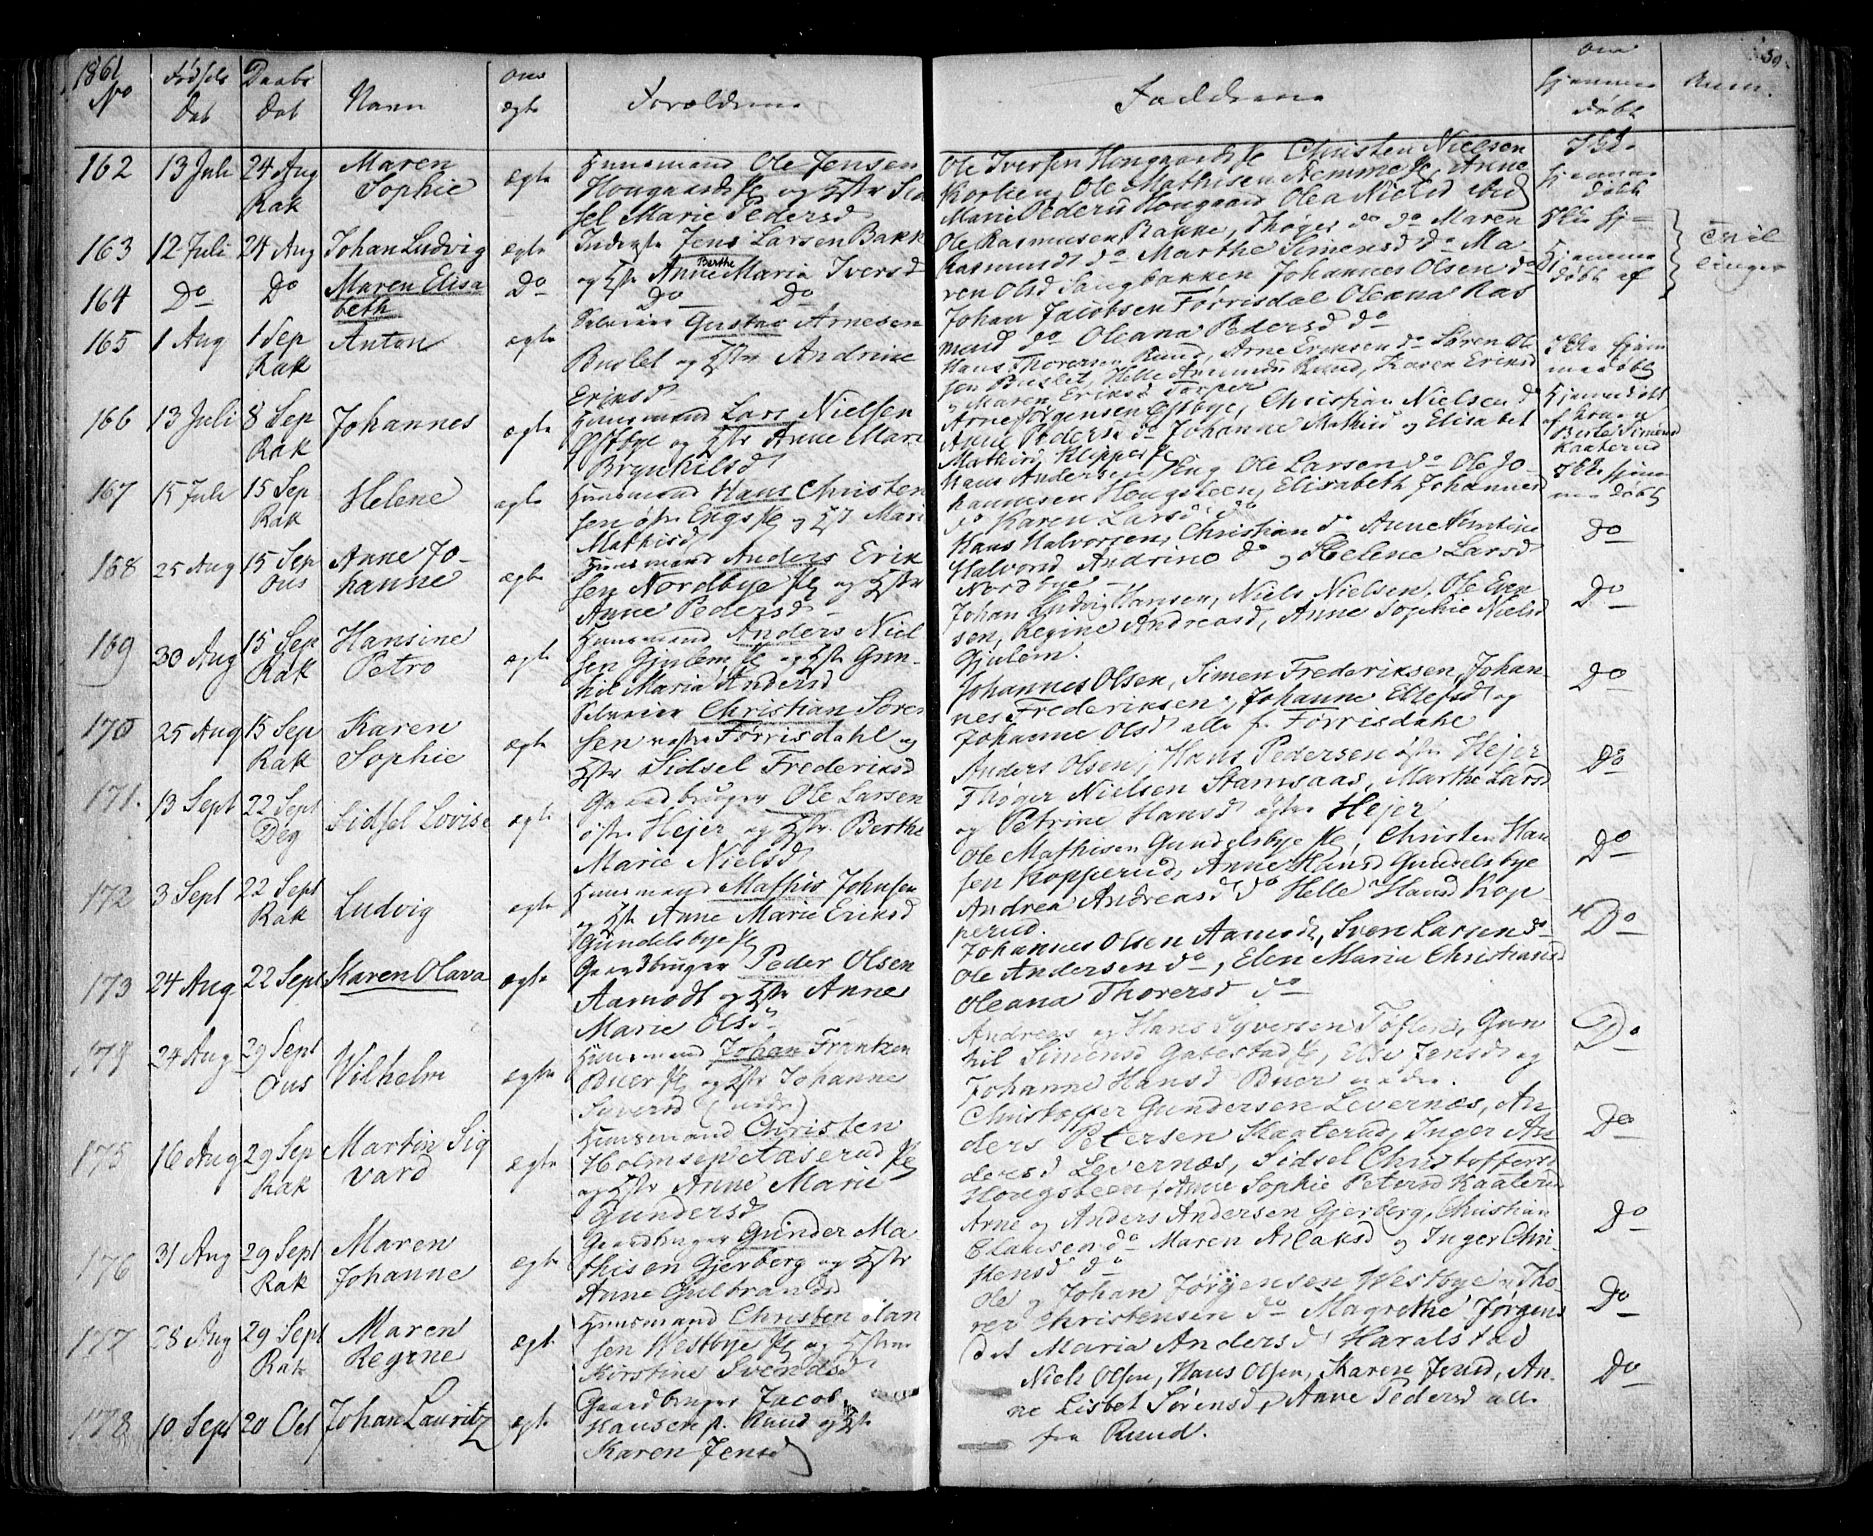 1861
No
Fødsels
Dat
Daabs
Dat
Navn
om
ægte
Forældrene
Fadderne
om
hjemme
døbt
Anm.
162 13 Juli 24 Aug Rak Maren Sophie ægte
Huusmand Ole Jensen
Hougaards og Hstr Sid
sel Marie Pedersd
Ole Iversen Christen Nielsen
Ole Mathisen Anne
Marie Pedersd Hougaard Olea Nielsd
Ikke
hjemme
døbt
163 12 Juli 24 Aug Johan Ludvig ægte
Inderste Jens Larsen Bakk
og Hstr Anne Berthe Maria Iversd
Ole Rasmussen Bakke, Thøger do do Maren
Rasmusd do Marthe Simensd do Ma
ren Olsd Johannes Olsen do
Hjemme
døbt af
Tvil
linger
164 Do Do Maren Elisa
beth Do
Do Do
Johan Jacobsen Førrisdal Oleana Ras
musd do Oleana Pedersd do
165 1 Aug 1 Sep Rak Anton ægte
Selveier Gustav Arnesen
Buslet og Hstr Andrine
Eriksd
Hans Thoresen Ruud, Arne Eriksen do Søren Ol
sen Buslet, Helle Ruud, Karen Eriksd
Maren Eriksd Torper
Ikke hjem
medøbt
166 13 Juli 8 Sep Rak Johannes ægte
Huusmand Lars Nielsen
Østbye og Hstr Anne Mari
Brynhilsd
Arne Jørgensen Østbye, Christian Nielsen d
Anne Pedersd do Johanne Mathisd og Elisabet
Mathisd
Hjemmedøbt
af
Berte Simensd
Kaaterud
167 15 Juli 15 Sep Rak Helene ægte
Huusmand Hans Christen
sen østre Engs og H Mari
Mathisd
Hans Andersen Eng Ole Larsen do Ole Jo-
hannesen Hougsteen, Elisabeth Johannesd
do Karen Larsd do
Ikke hjem
me døbt
168 25 Aug 15 Sep Ous Anne Jo-
hanne ægte
Huusmand Anders Erik
sen Nordbye og Hstr
Anne Pedersd
Hans Halvorsen, Christian do Anne
Halvorsd Andrine do og Helene Larsd
Nordbye
Do
169 30 Aug 15 Sep Rak Hansine
Petro ægte
Huusmand Anders Niel
sen Gjulem og Hstr Gun-
hil Maria Andersd
Johan Ludvig Hansen, Niels Nielsen, Ole Even
sen, Regine Andreasd, Anne Sophie Nielsd
Gjulem.
Do
170 25 Aug 15 Sep Rak Karen
Sophie ægte
Selveier Christian Søren
sen vestre Førrisdahl og
Hstr Sidsel Frederiksd
Johannes Olsen, Simen Frederiksen, Johan-
nes Frederiksen, Johanne Ellefsd og
Johanne Olsd alle f. Førrisdahl
Do
171. 13 Sept 22 Sept Deg Sidsel Lovise ægte
Gaardbruger Ole Larsen
østre Hejer og Hstr. Berthe
Marie Nielsd
Anders Olsen, Hans Pedersen østre Hejer
Thøger Nielsen Stamsaas, Marthe Larsd
og Petrine Hansd østre Hejer
Do
172 3 Sept 22 Sept Rak Ludvig ægte
Huusmand Mathis Johnsen
og Hstr Anne Marie Eriksd
Gundelsbye
Ole Mathisen Gundelsbye, Christen Han
sen Kopperud, Anne Hansd Gundelsbye
Andrea Andreasd do Helle Hansd Kop
perud.
Do
173 24 Aug 22 Sept Karen Olava ægte
Gaardbruger Peder Olsen
Aamodt og Hstr Anne
Marie Olsd
Johannes Olsen Aamodt, Sven Larsen do
Ole Andersen do, Elen Maria Christiansd
Oleana Thorersd do
Do
174 24 Aug 29 Sept Ous Vilhelm ægte
Huusmand Johan Frantzen
Buer og Hstr Johanne
Syversd (nedre)
Andreas og Hans Syversen Toften, Gun
hil Simensd Gatestad, Else Jensd og
Johanne Hansd Buer nedre.
Do
175 16 Aug 29 Sep Rak Martin Sig
vard ægte
Huusmand Christen
Holmsen Taserud
og Hstr Anne Marie
Gundersd
Christopher Gundersen Levernæs, An
ders Petersen Kaaterud, Inger An
dersd Levernæs, Sidsel Christoffersd
Hougsteen, Anne Sophie Petersd Kaaterud
Do
176 31 Aug 29 Sept Rak Maren
Johanne ægte
Gaardbruger Gunder Ma
thisen Gjerberg og Hstr
Anne Gulbrandsd
Arne og Anders Andersen Gjerberg, Christian
Clausen do Maren Aslaksd og Inger Chri
stensd do
Do
177 28 Aug 29 Sept Rak Maren
Regine ægte
Huusmand Christen Han
sen Westbye og Hstrue
Kirstine Svendsd
Ole og Johan Jørgensen Westbye, Tho
rer Christensen do Magrethe Jørgens
dt Maria Andersd Haralstad
Do
178 10 Sept 20 Oct Johan Lauritz ægte
Gaardbruger Jacob
Hansen Ruud og Hstr
Karen Jensd
Niels Olsen, Hans Olsen, Karen Jensd, An-
ne Lisbet Sørensd, Anne Pedersd alle
fra Ruud.
Do